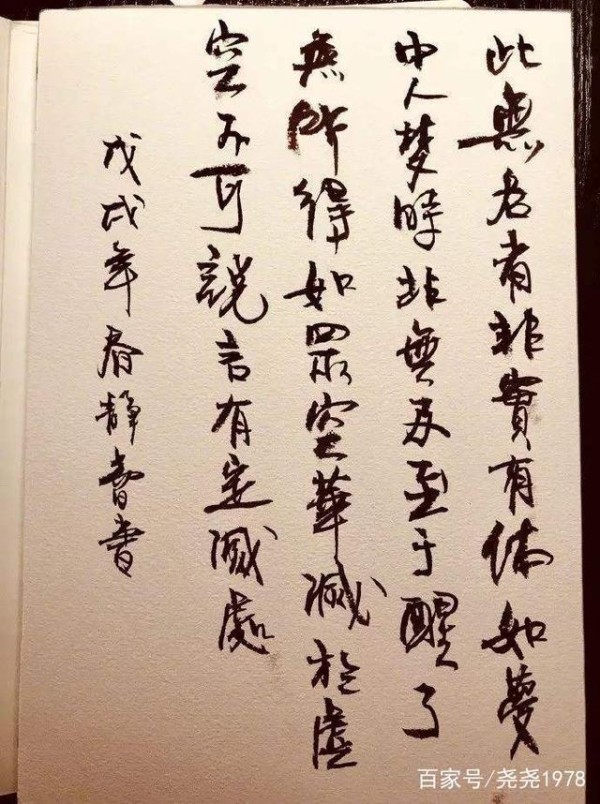 此無名者非實有体如夢
中人梦時非無及至于醒了
無所得如眾空華滅於虚
空不可說言有定滅處
戊戌年春静書
百家号/尧尧1978